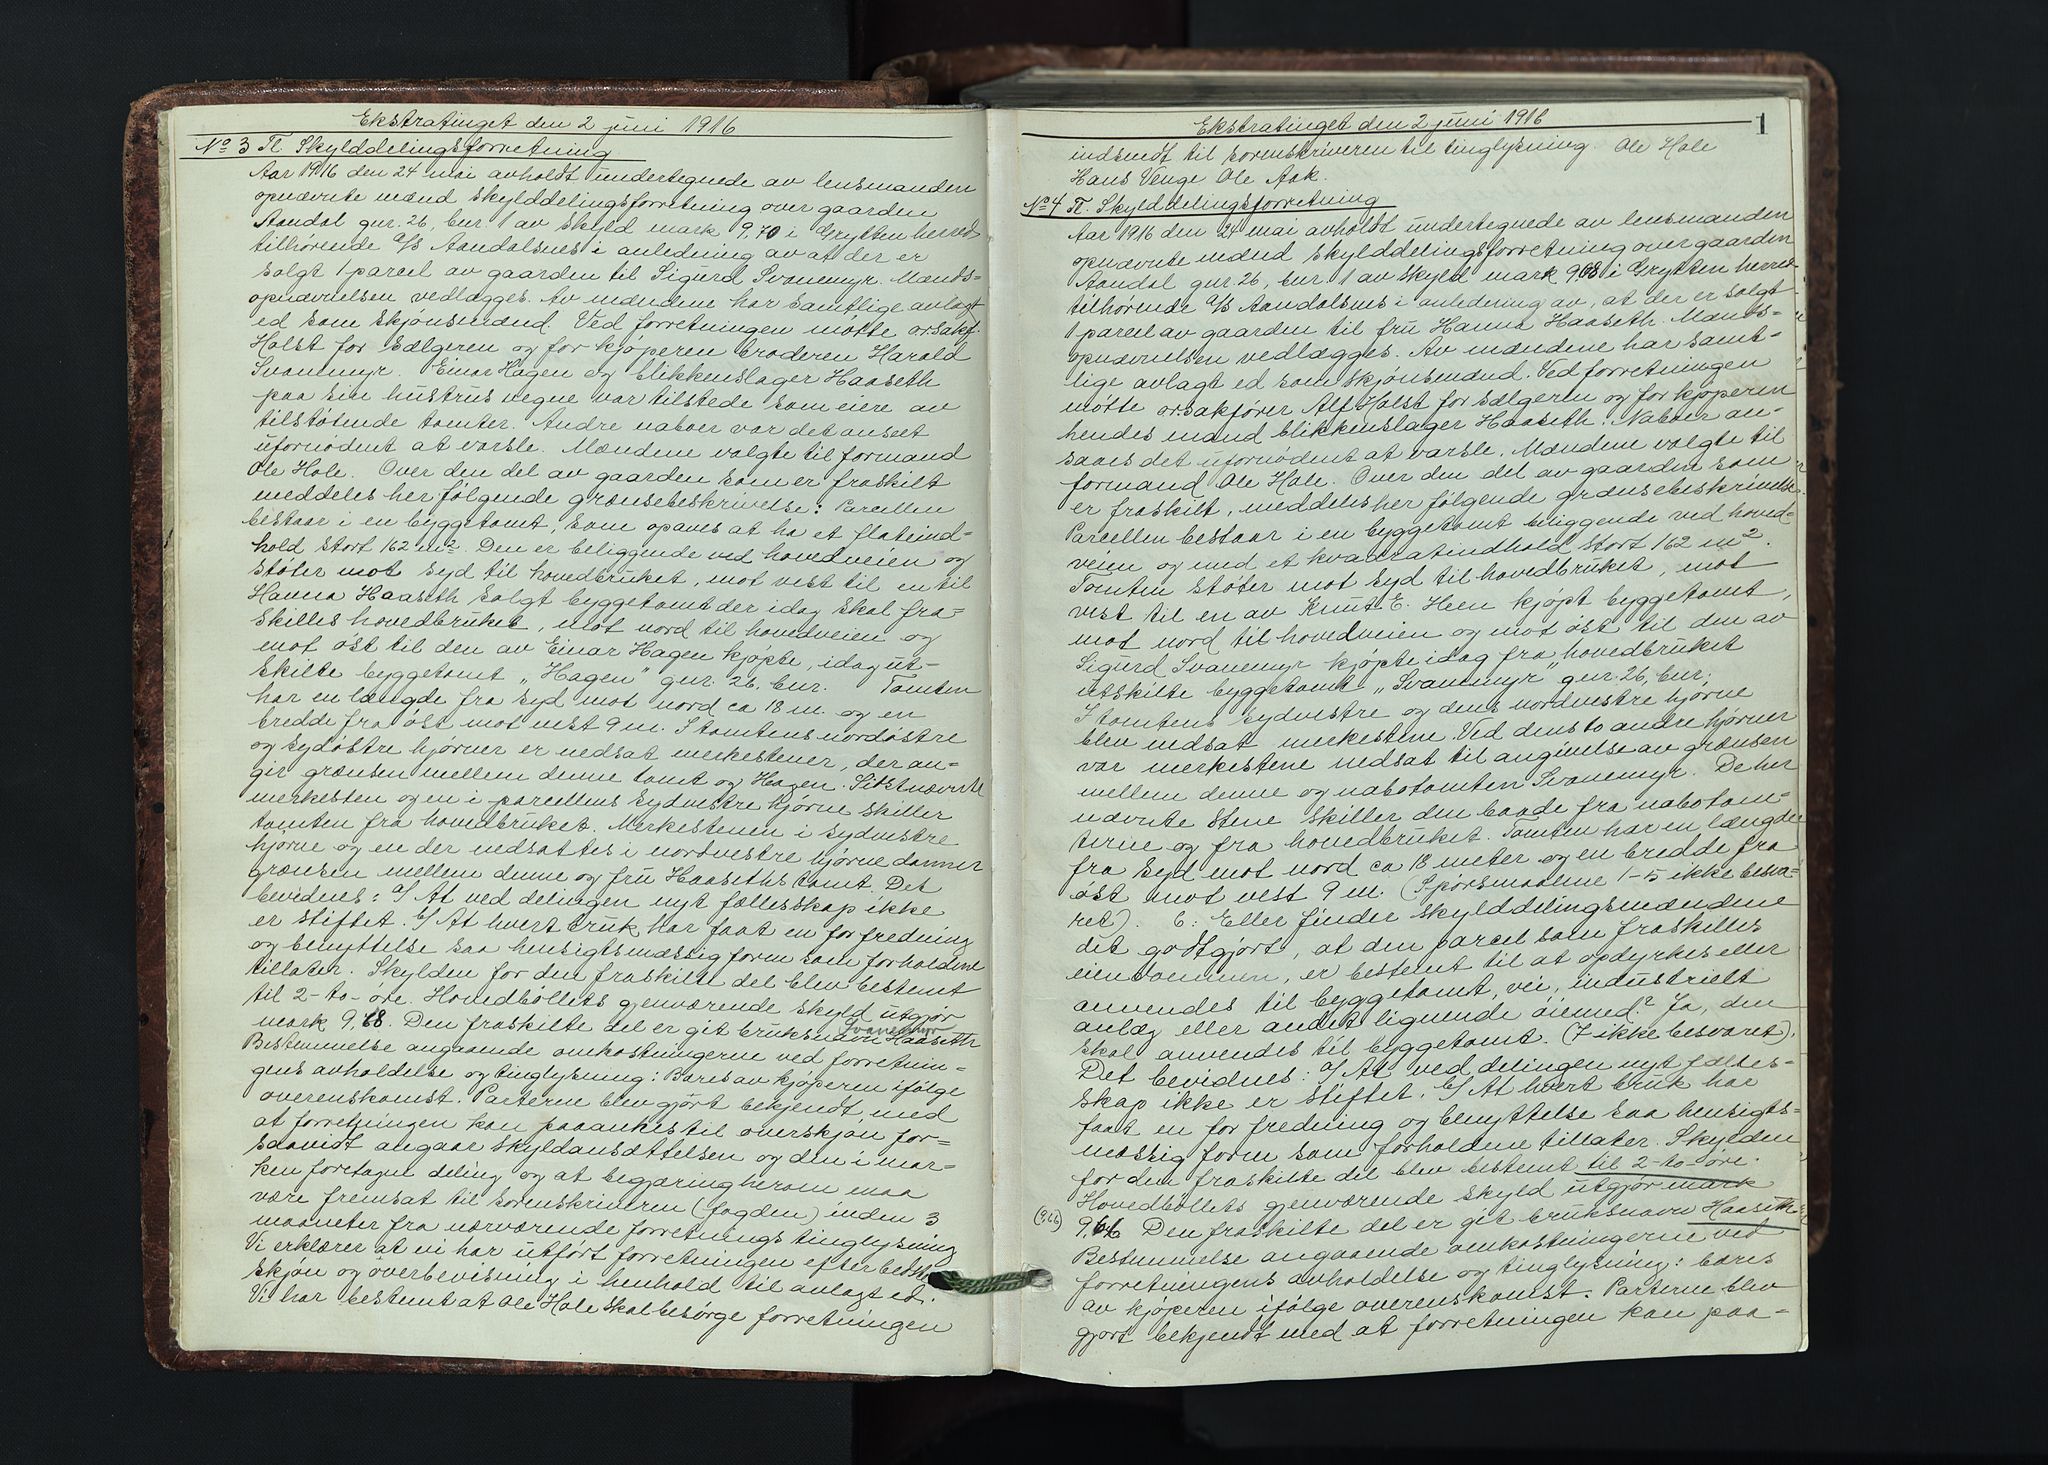 Ekstratinget den 2 juni 1916
No 3 Tl. Skylddelingsforretning
Aar 1916 den 24 mai avholdt undertegnede av lensmanden
opnævnte mænd skylddelingsforretning over gaarden
Aandal gnr. 26, bnr. 1 av skyld mark 9,70 i Grytten herred
tilhørende A/S Aandalsnes i anledning av at der er
solgt 1 parcel av gaarden til Sigurd Svanemyr. Mænds-
opnævnelsen vedlægges. Av mændene har samtlige avlagt
ed som skjønsmænd. Ved forretningen møtte orsakf.
Holst for sælgeren og for kjøperen broderen Harald
Svanemyr. Einar Hagen og blikkenslager Haaseth
paa sin hustrus vegne var tilstede som eiere av
tilstøtende tomter. Andre naboer var det anseet
ufornødent at varsle. Mændene valgte til formand
Ole Hole. Over den del av gaarden som er fraskilt
meddeles her følgende grænsebeskrivelse: Parcellen
bestaar i en byggetomt, som opgives at ha et flateind-
hold stort 162 m2. Den er beliggende ved hovedveien og
støter mot syd til hovedbruket, mot vest til en til
Hanna Haaseth solgt byggetomt der idag skal fra-
skilles hovedbruket, mot nord til hovedveien og
mot øst til den av Einar Hagen kjøpte, idag ut-
skilte byggetomt "Hagen" gnr. 26, bnr. Tomten
har en længde fra syd mot nord ca 18 m. og en
bredde fra øst mot vest 9 m. I tomtens nordøstre
og sydøstre hjørner er nedsat merkestener, der an-
gir grænsen mellem denne tomt og Hagen. Sidstnævnte
merkesten og en i parcellens sydvestre hjørne skiller
tomten fra hovedbruket. Merkestenen i sydvestre
hjørne og en der nedsattes i nordvestre hjørne danner
grænsen mellem denne og fru Haaseths tomt. Det
bevidnes: a/ At ved delingen nyt fællesskap ikke
er stiftet. b/ At hvert bruk har faat en for fredning
og benyttelse saa hensigtsmæssig form som forholdene
tillater. Skylden for den fraskilte del blev bestemt
til 2-to-øre. Hovedbøllets gjenværende skyld utgjør
mark 9,68. Den fraskilte del er git bruksnavn Haaseth Svanemyr
Bestemmelse angaaende omkostningerne ved forretnin-
gens avholdelse og tinglysning: Bæres av kjøperen ifølge
overenskomst. Parterne blev gjort bekjendt med
at forretningen kan paaankes til overskjøn for-
saavidt angaar skyldansættelsen og den i mar-
ken foretagne deling og at begjæring herom maa
være fremsat til sorenskriveren (fogden) inden 3
maaneter fra nærværende forretnings tinglysning
Vi erklærer at vi har utført forretningen efter bedste
skjøn og overbevisning i henhold til avlagt ed.
Vi har bestemt at Ole Hole skal besørge forretningen
Ekstratinget den 2 juni 1916
1
indsendt til sorenskriveren til tinglysning. Ole Hole
Hans Venge Ole Aak.
No 4 Tl. Skylddelingsforretning
Aar 1916 den 24 mai avholdt undertegnede av lensmanden
opnævnte mænd skylddelingsforretning over gaarden
Aandal gnr. 26, bnr. 1 av skyld mark 9,68 i Grytten herred
tilhørende A/S Aandalsnes i anledning av, at der er solgt
1 parcel av gaarden til fru Hanna Haaseth. Mænds-
opnævnelsen vedlægges. Av mændene har samt-
lige avlagt ed som skjønsmænd. Ved forretningen
møtte orsakfører Alf Holst for sælgeren og for kjøperen
hendes mand blikkenslager Haaseth. Naboer an-
saaes det ufornødent at varsle. Mændene valgte til
formand Ole Hole. Over den del av gaarden som
er fraskilt, meddeles her følgende grænsebeskrivelse
Parcellen bestaar i en byggetomt beliggende ved hoved-
veien og med et kvadratindhold stort 162 m2.
Tomten støter mot syd til hovedbruket, mot
vest til en av Knut E. Heen kjøpt byggetomt,
mot nord til hovedveien og mot øst til den av
Sigurd Svanemyr kjøpte idag fra hovedbruket
utskilte byggetomt "Svanemyr" gnr. 26, bnr;
I tomtens sydvestre og dens nordvestre hjørne
blev nedsat merkestene. Ved dens to andre hjørner
var merkestene nedsat til angivelse av grænsen
mellem denne og nabotomten Svanemyr. De her
nævnte stene skiller den baade fra nabotom-
terne og fra hovedbruket. Tomten har en længde
fra syd mot nord ca 18 meter og en bredde fra
øst mot vest 9 m. (Spørsmaalene 1-5 ikke besva-
ret). 6: Eller finder skylddelingsmændene
det godtgjort, at den parcel som fraskilles
eiendommen, er bestemt til at opdyrkes eller
anvendes til byggetomt, vei, industrielt
anlæg eller andet lignende øiemed? Ja, den
skal anvendes til byggetomt. (7 ikke besvaret).
Det bevidnes: a/ At ved delingen nyt fælles-
skap ikke er stiftet. b/ At hvert bruk har
faat en for fredning og benyttelse saa hensigts-
mæssig form som forholdene tillater. Skylden
for den fraskilte del blev bestemt til 2-to-øre.
Hovedbøllets gjenværende skyld utgjør mark
(9,66) 9,66 Den fraskilte del er git bruksnavn Haaseth
Bestemmelse angaaende omkostningerne ved
forretningens avholdelse og tinglysning: bæres
av kjøperen ifølge overenskomst. Parterne blev
gjort bekjendt med at forretningen kan paa-